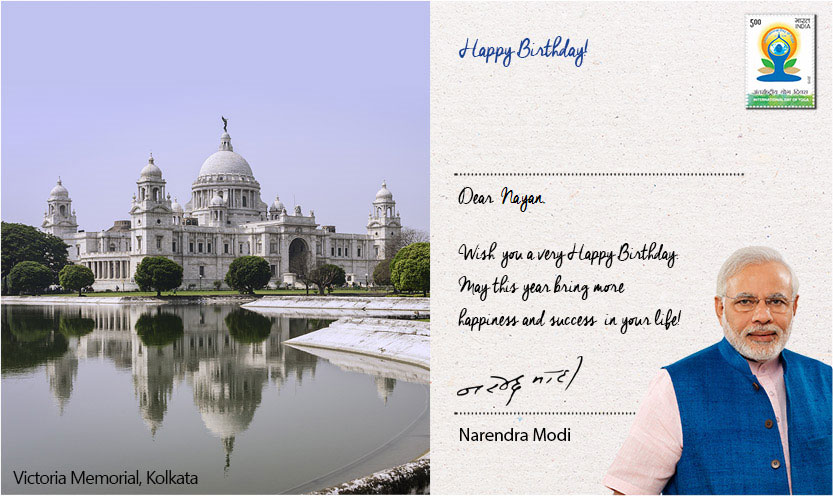 Happy Birthday!
5.00
भारत
INDIA
अंतर्राष्ट्रीय योग दिवस
INTERNATIONAL DAY OF YOGA
Dear Nayan
Wish you a very Happy Birthday.
May this year bring more
happiness and success in your life!
नरेन्द्र मोदी
Narendra Modi
Victoria Memorial, Kolkata